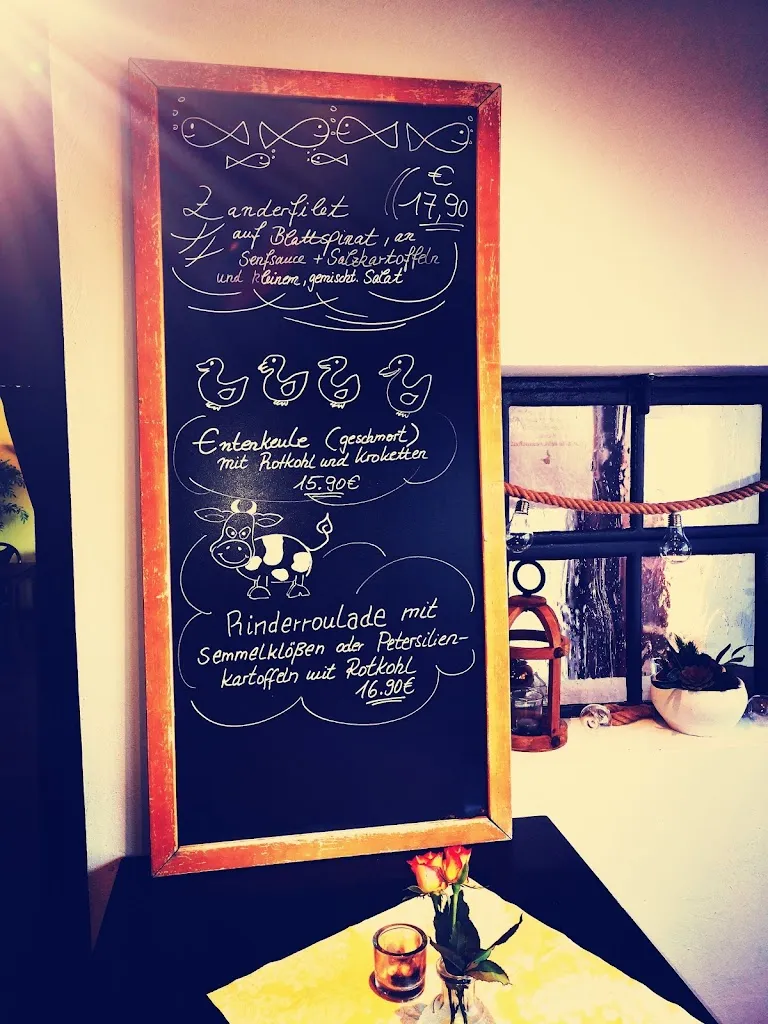 €
Zanderfilet 17,90
auf Blattspinat, an
Senfsauce + Salzkartoffeln
und kleinem, gemischt. Salat
Entenkeule (geschmort)
mit Rotkohl und Kroketten
15.90€
Rinderroulade mit
Semmelklößen oder Petersilien-
kartoffeln mit Rotkohl
16.90€